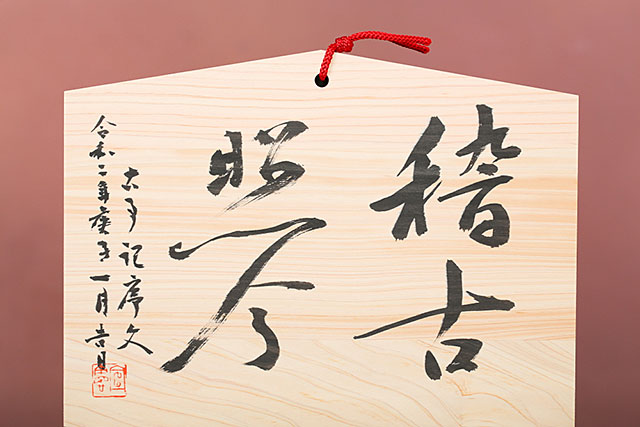 稽古
照今
古事記序文
令和二年庚子一月吉日